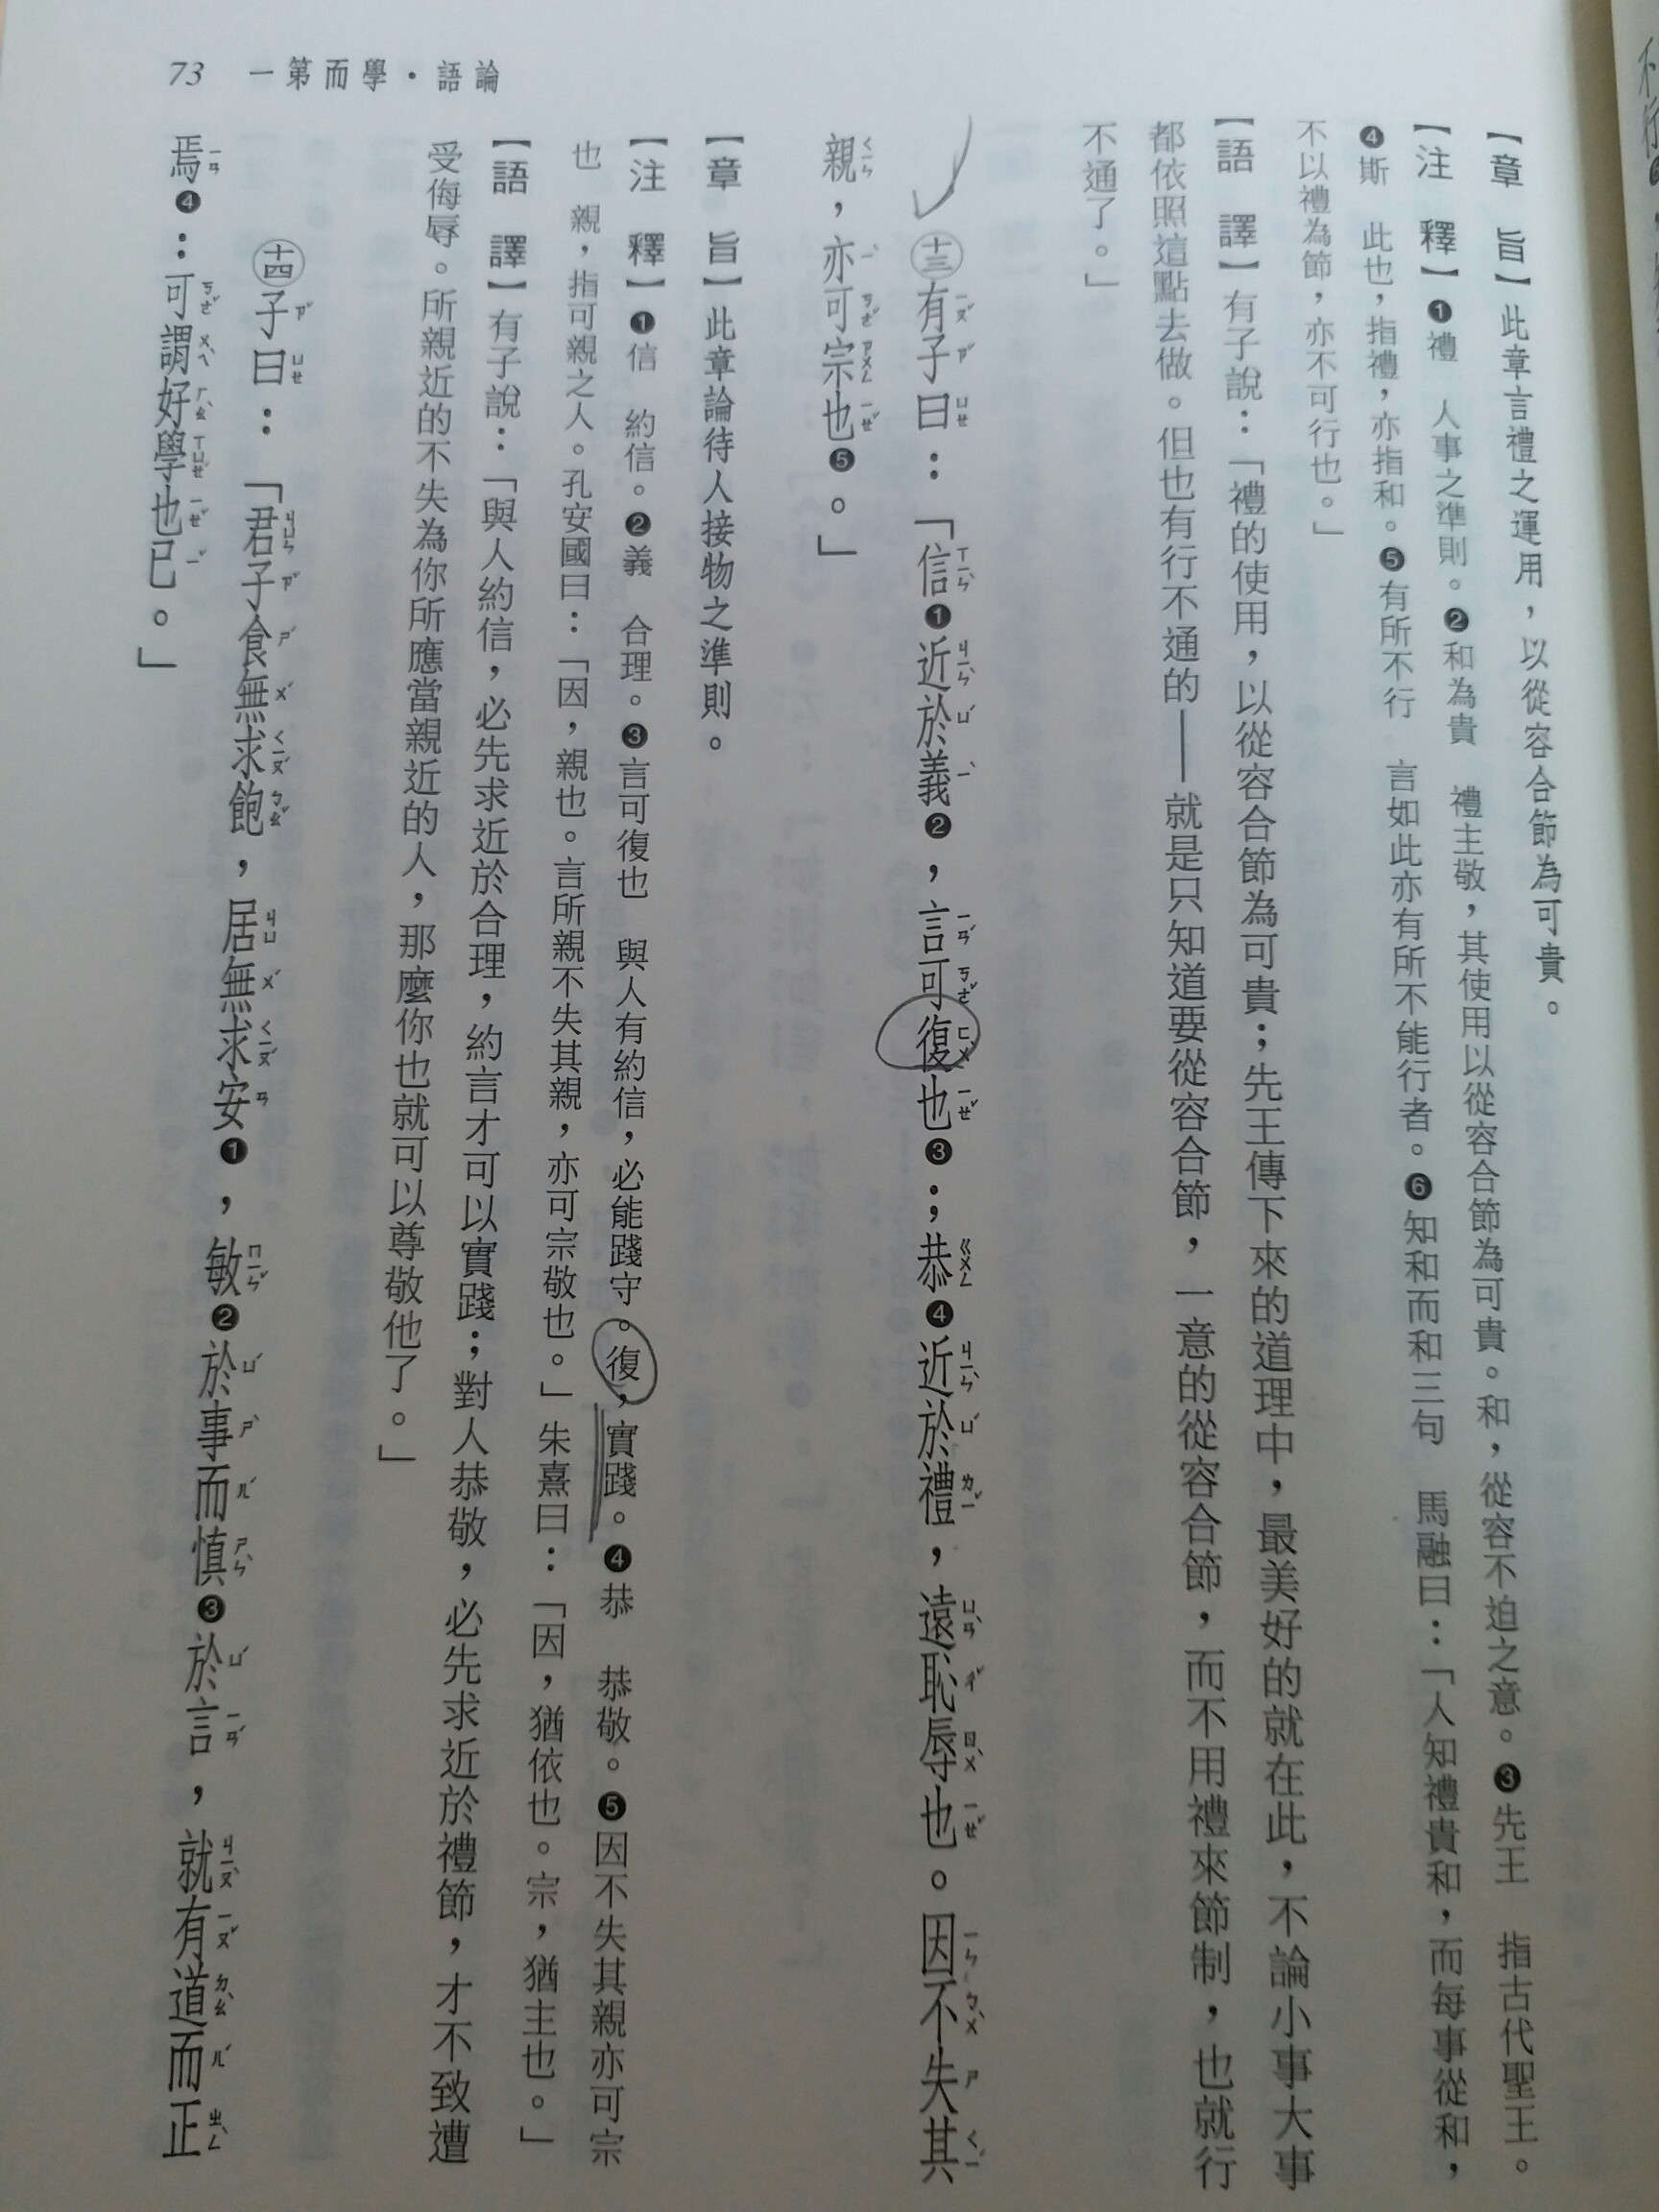 【章　旨】此章言禮之運用，以從容合節為可貴。
【注　釋】❶禮　人事之準則。❷和為貴　禮主敬，其使用以從容合節為可貴。和，從容不迫之意。❸先王　指古代聖王。
❹斯　此也，指禮，亦指和。❺有所不行　言如此亦有所不能行者。❻知和而和三句　馬融曰：「人知禮貴和，而每事從和，
不以禮為節，亦不可行也。」
【語　譯】有子說：「禮的使用，以從容合節為可貴；先王傳下來的道理中，最美好的就在此，不論小事大事
都依照這點去做。但也有行不通的——就是只知道要從容合節，一意的從容合節，而不用禮來節制，也就行
不通了。」
㊉三有子曰：「信❶近於義❷，言可復也❸；恭❹近於禮，遠恥辱也。因不失其
親，亦可宗也❺。」
【章　旨】此章論待人接物之準則。
【注　釋】❶信　約信。❷義　合理。❸言可復也　與人有約信，必能踐守。復，實踐。❹恭　恭敬。❺因不失其親亦可宗
也　親，指可親之人。孔安國曰：「因，親也。言所親不失其親，亦可宗敬也。」朱熹曰：「因，猶依也。宗，猶主也。」
【語　譯】有子說：「與人約信，必先求近於合理，約言才可以實踐；對人恭敬，必先求近於禮節，才不致遭
受侮辱。所親近的不失為你所應當親近的人，那麼你也就可以尊敬他了。」
㊉四子曰：「君子食無求飽，居無求安❶，敏❷於事而慎❸於言，就有道而正
焉❹：可謂好學也已。」
73　一第而學・語論